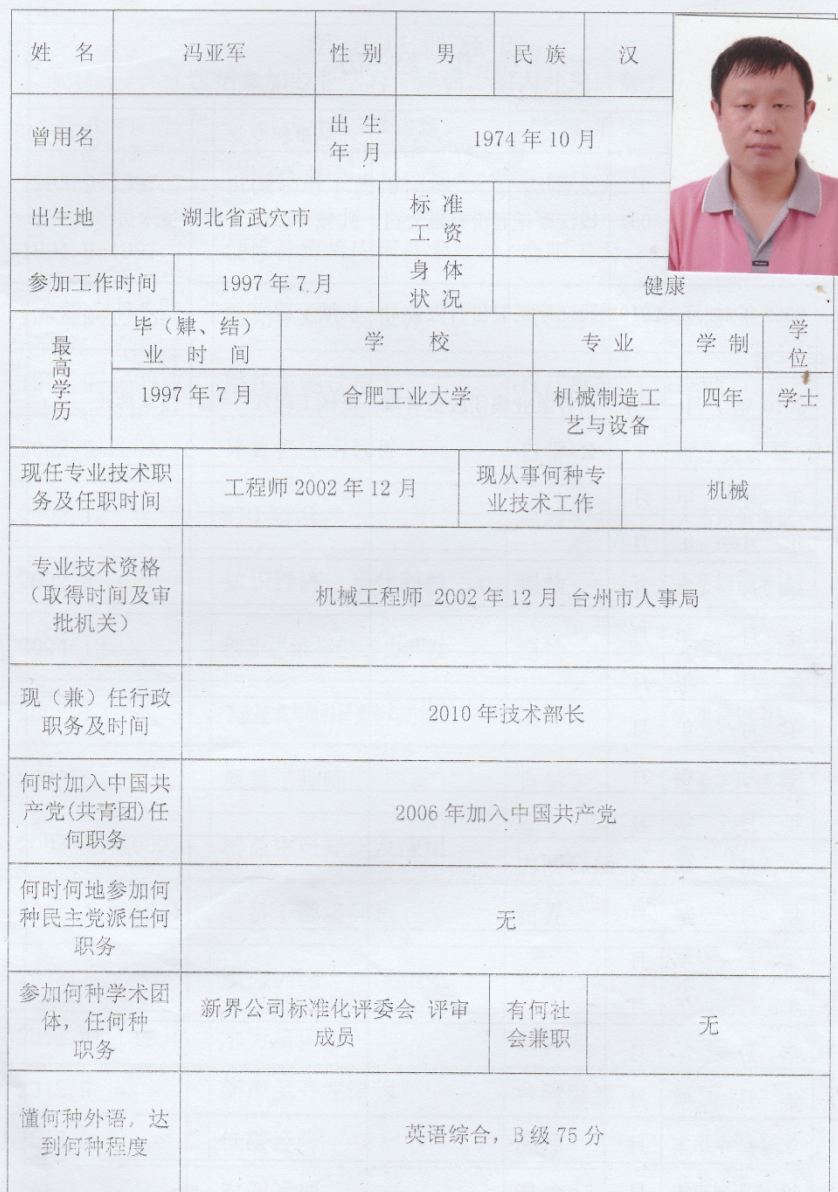 姓 名 冯亚军 性 别 男 民 族 汉
曾用名 出 生
年 月 1974 年 10 月
出生地 湖北省武穴市 标 准
工 资
参加工作时间 1997 年 7 月 身 体
状 况 健康
最高学历 毕（肄、结）
业 时 间 学 校 专 业 学 制 学
位
1997 年 7 月 合肥工业大学 机械制造工
艺与设备 四年 学士
现任专业技术职
务及任职时间 工程师 2002 年 12 月 现从事何种专
业技术工作 机械
专业技术资格
（取得时间及审
批机关） 机械工程师 2002 年 12 月 台州市人事局
现（兼）任行政
职务及时间 2010 年技术部长
何时加入中国共
产党(共青团)任
何职务 2006 年加入中国共产党
何时何地参加何
种民主党派任何
职务 无
参加何种学术团
体，任何种
职务 新界公司标准化评委会 评审
成员 有何社
会兼职 无
懂何种外语，达
到何种程度 英语综合，B 级 75 分